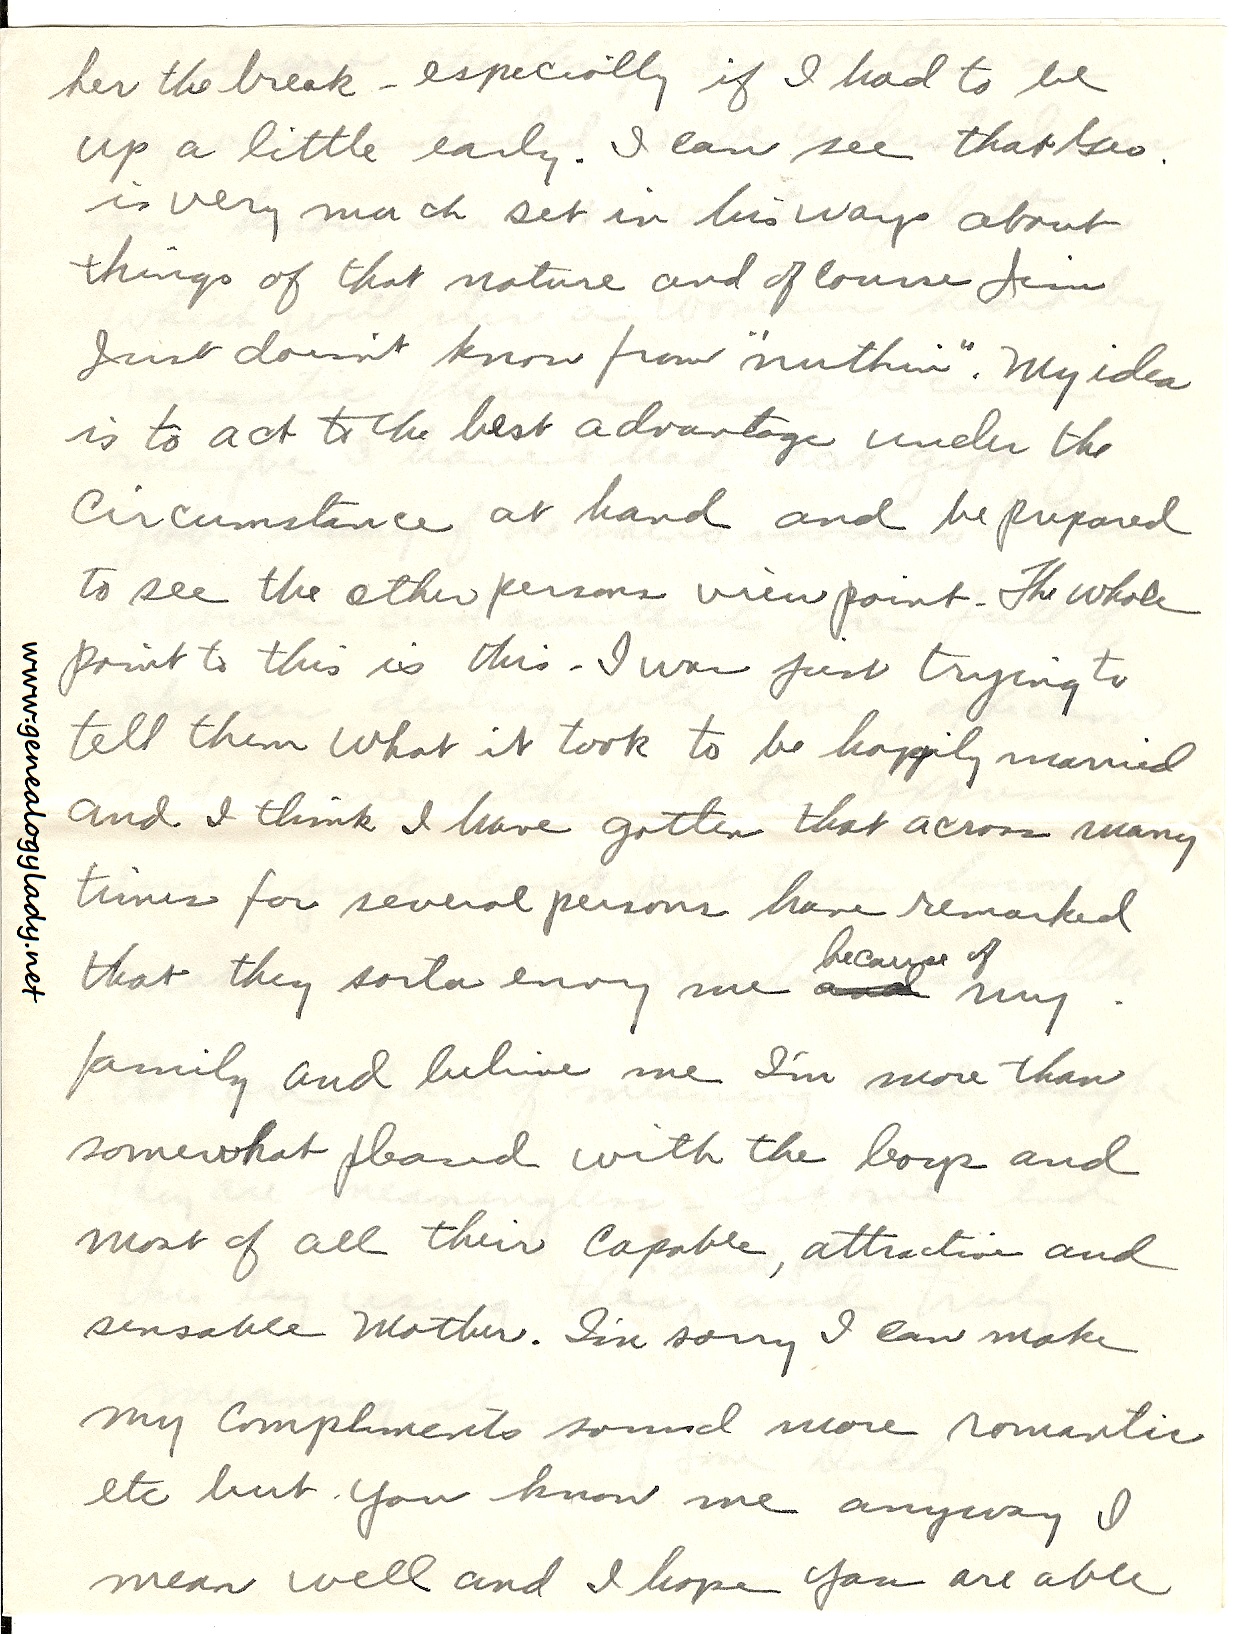 her the break - especially if I had to be
up a little early. I can see that Geo.
is very much set in his ways about
things of that nature and of course Jim
Just doesn't know from "nuthin". My idea
is to act to the best advantage under the
circumstance at hand and be prepared
to see the other persons view point. The whole
point to this is this - I was just trying to
tell them what it took to be happily married
and I think I have gotten that across many
times for several persons have remarked
because of
that they sorta envy me and my
family and believe me I'm more than
somewhat pleased with the boys and
most of all their capable, attractive and
sensable Mother. I'm sorry I can make
my compliments sound more romantic
etc but you know me anyway I
mean well and I hope you are able
www.genealogylady.net